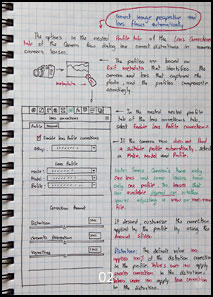 Correct image perspective and
lens flaws automatically
The options in the nested Profile tab of the Lens Corrections
tab of the Camera Raw dialog box correct distortions in common
camera lenses.
The profiles are based on
Exif metadata that identifies the
camera and lens that captured the
photo, and the profiles compensate
accordingly.
metadata
In the nested nested profile
tab of the Lens Corrections tab,
select Enable Lens Profile Corrections.
Lens Corrections
Profile
Enable Lens Profile Corrections
Setup:
If the camera raw does not find
a suitable profile automatically, select
a Make, Model and Profile.
Lens Profile
Make:
Model:
Profile:
Note: Some cameras have only
one lens and some lenses have
only one profile. The lenses that
are available depend on whether
you're adjusting a raw or non-raw
file.
Correction Amount
Distortion
Chromatic Aberration
Vignetting
If desired customise the correction
applied by the profile by using the
Amount sliders:
Distortion: The default value 100
applies 100% of the distortion correction
in the profile. Values over 100 apply
greater correction to the distortion.
Values under 100 apply less correction
to the distortion.
02